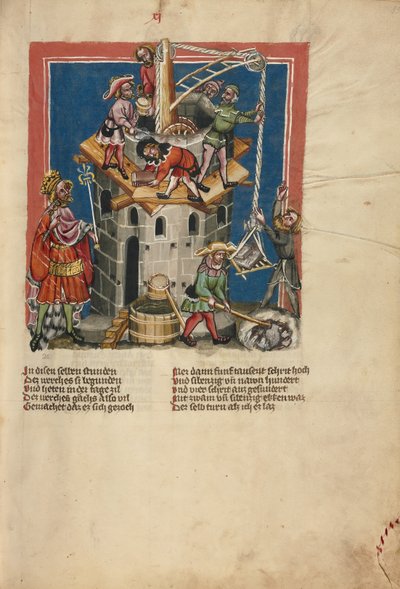 In disen selben stunden
Des werches si begunden
Und heten in der tage zil
Des werches gahs also vil
Gemachet daz ez sich zeoch
Mer dann funf tausent schrit hoch
Und sibenzig vñ nawn hundert
Und vier schrit auz gesundert
Mit zwain vñ sibenzig ekken waz
Der selb turn als ich ez laz